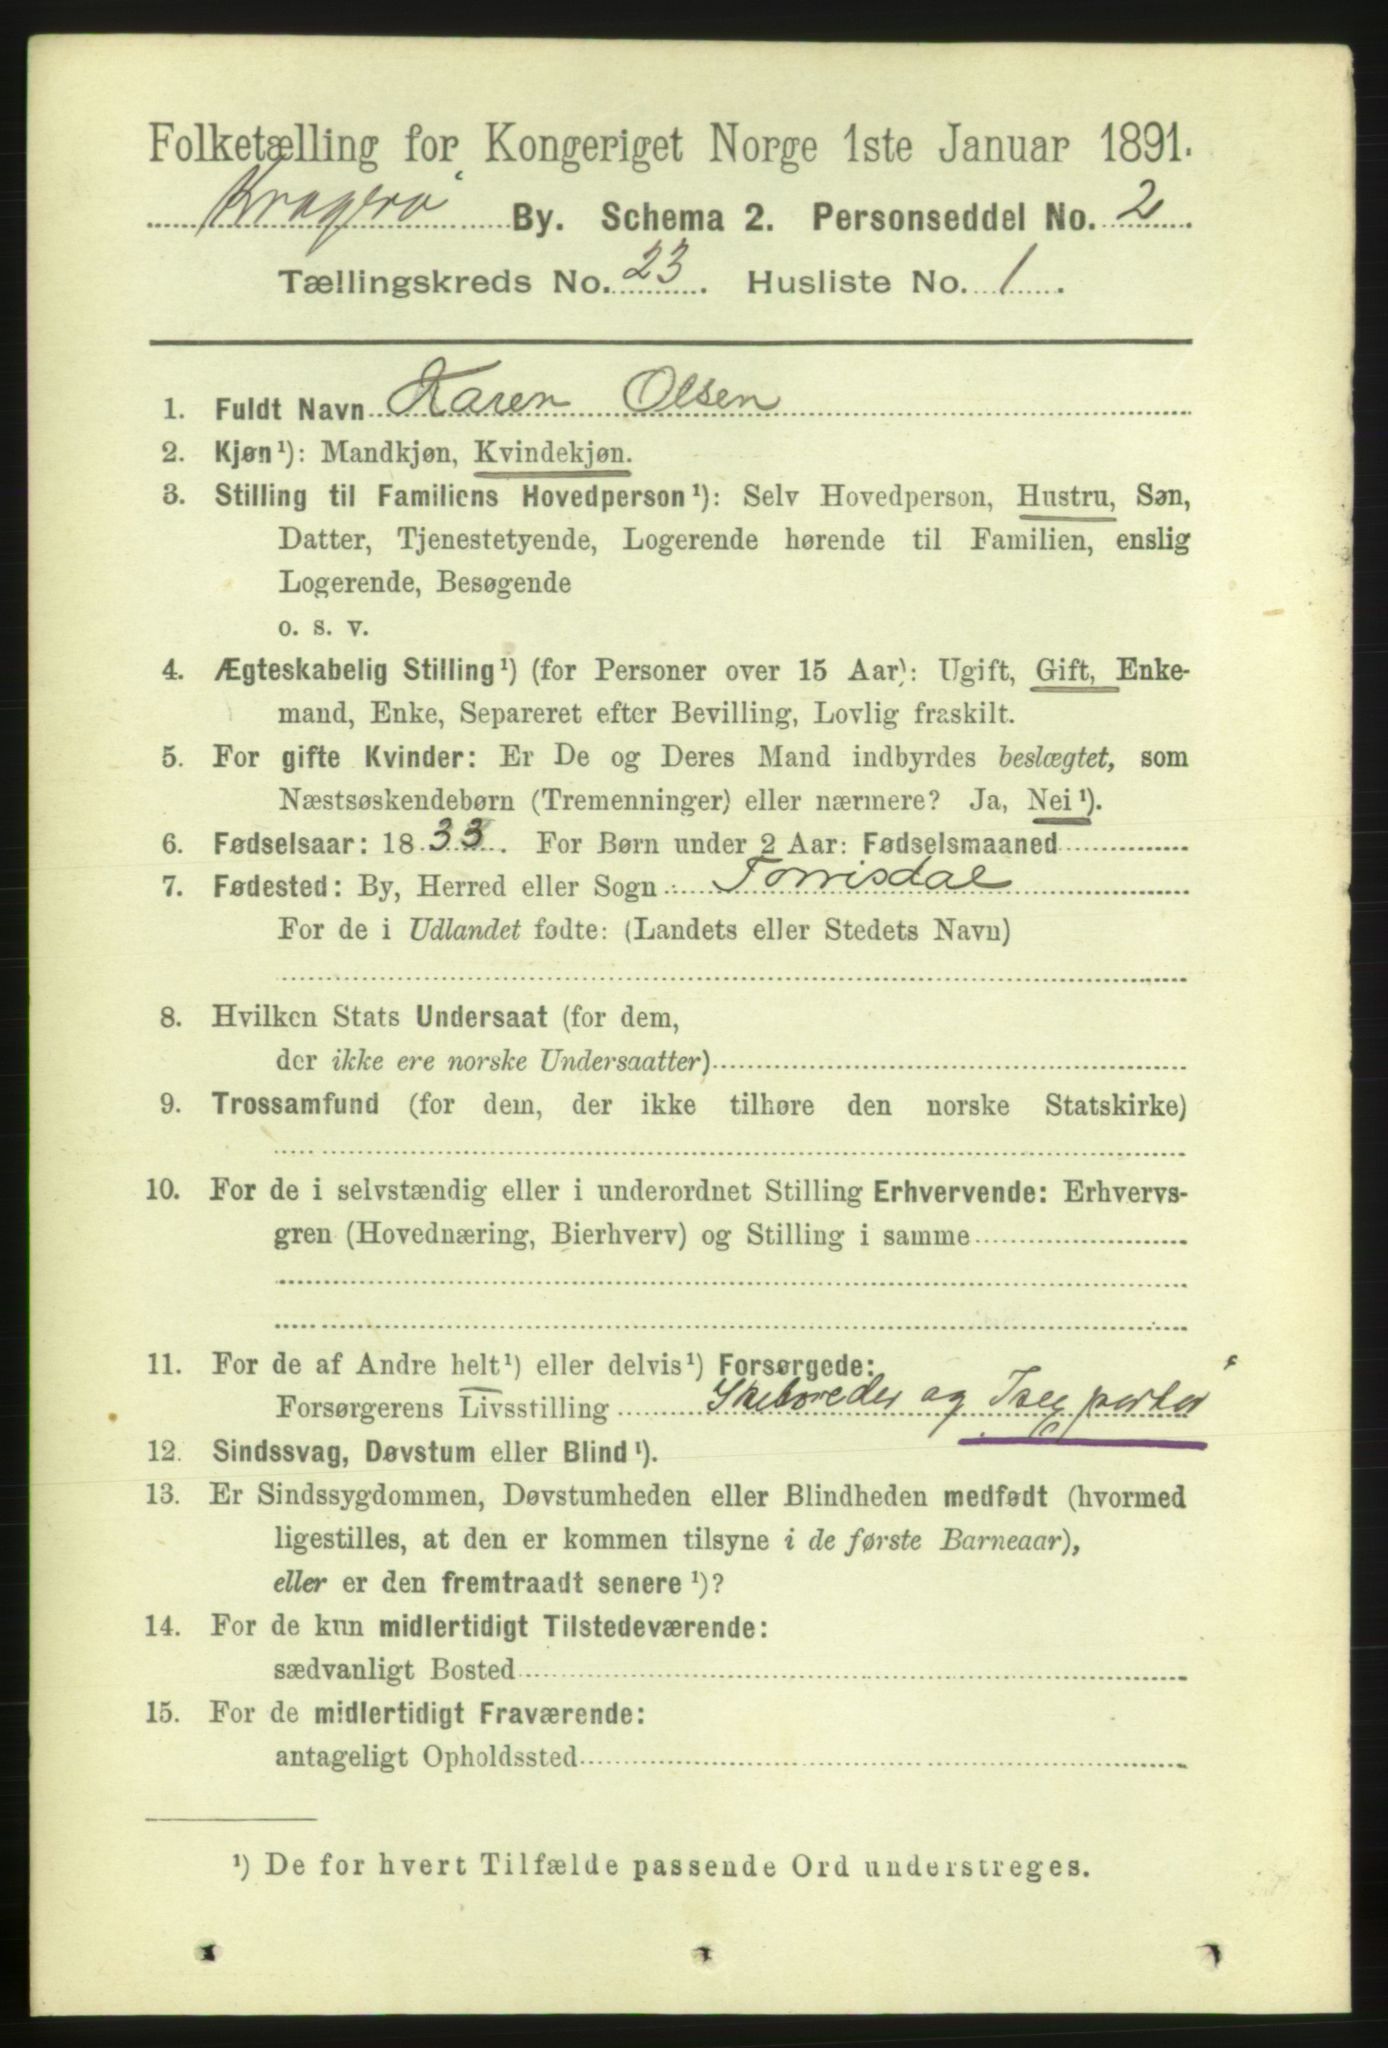 Folketælling for Kongeriget Norge 1ste Januar 1891.
Kragerø By. Schema 2. Personseddel No. 2
Tællingskreds No. 23. Husliste No. 1.
1. Fuldt Navn Karen Olsen
2. Kjøn¹): Mandkjøn, Kvindekjøn.
3. Stilling til Familiens Hovedperson¹): Selv Hovedperson, Hustru, Søn,
Datter, Tjenestetyende, Logerende hørende til Familien, enslig
Logerende, Besøgende
o. s. v.
4. Ægteskabelig Stilling¹) (for Personer over 15 Aar): Ugift, Gift, Enke-
mand, Enke, Separeret efter Bevilling, Lovlig fraskilt.
5. For gifte Kvinder: Er De og Deres Mand indbyrdes beslægtet, som
Næstsøskendebørn (Tremenninger) eller nærmere? Ja, Nei¹).
6. Fødselsaar: 1833. For Børn under 2 Aar: Fødselsmaaned
7. Fødested: By, Herred eller Sogn Torrisdal
For de i Udlandet fødte: (Landets eller Stedets Navn)
8. Hvilken Stats Undersaat (for dem,
der ikke ere norske Undersaatter)
9. Trossamfund (for dem, der ikke tilhøre den norske Statskirke)
10. For de i selvstændig eller i underordnet Stilling Erhvervende: Erhvervs-
gren (Hovednæring, Bierhverv) og Stilling i samme
11. For de af Andre helt¹) eller delvis¹) Forsørgede:
Forsørgerens Livsstilling og
12. Sindssvag, Døvstum eller Blind¹).
13. Er Sindssygdommen, Døvstumheden eller Blindheden medfødt (hvormed
ligestilles, at den er kommen tilsyne i de første Barneaar),
eller er den fremtraadt senere¹)?
14. For de kun midlertidigt Tilstedeværende:
sædvanligt Bosted
15. For de midlertidigt Fraværende:
antageligt Opholdssted
¹) De for hvert Tilfælde passende Ord understreges.